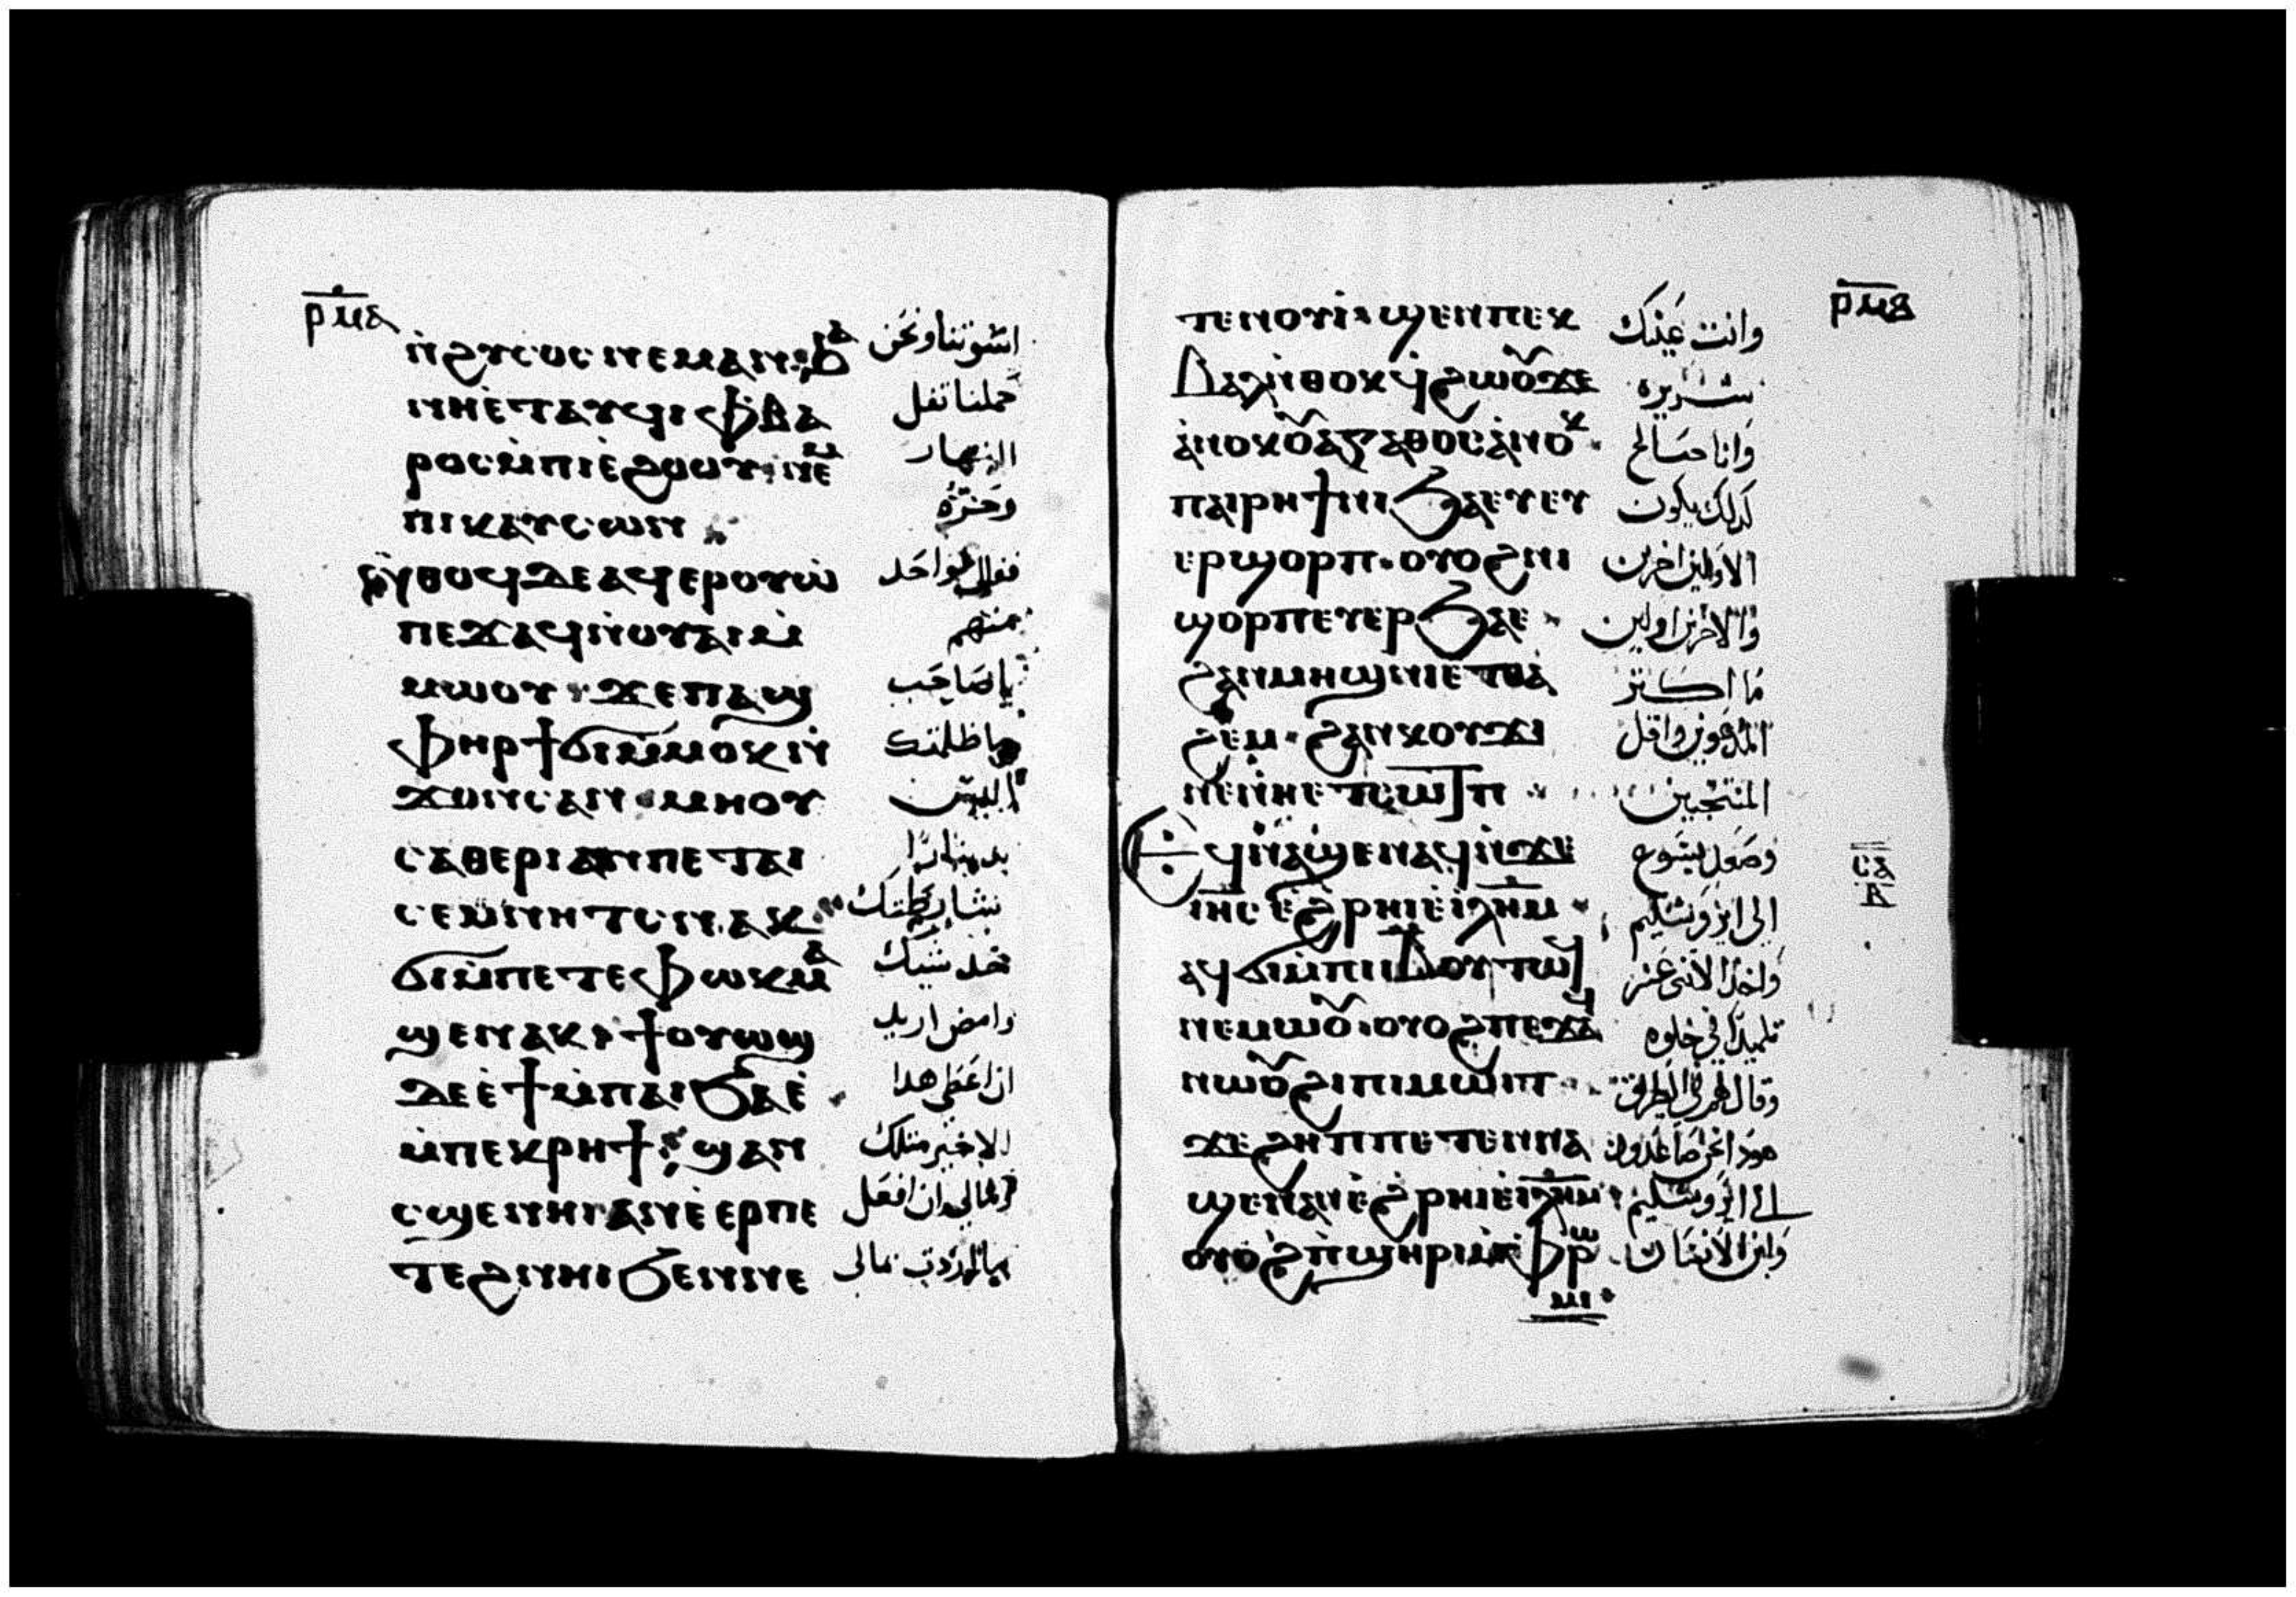 ⲣⲙⲁ
ⲛ̀ϩⲩⲥⲟⲥ ⲛⲉⲙⲁⲛ ϧⲁ
اسوتنا ونحن
ⲛⲏⲉⲧⲁⲩϥⲓ ⲫⲃⲁ
حملنا ثقل
ⲣⲟⲥ ⲙ̀ⲡⲓⲉϩⲟⲟⲩ ⲛⲉⲙ
النهار
ⲡⲓⲕⲁⲩⲥⲱⲛ
وحره
ⲛ̀ⲑⲟϥ ⲇⲉ ⲁϥⲉⲣⲟⲩⲱ̀
لواحد
ⲡⲉϫⲁϥ ⲛ̀ⲟⲩⲁⲓ ⲙ̀
منهم
ⲙⲱⲟⲩ ϫⲉ ⲡⲁϣ
يا صاحب
ⲫⲏⲣ ϯϭⲓ ⲙ̀ⲙⲟⲕ ⲛ̀
ما ظلمتك
ϫⲟⲛⲥ ⲁⲛ ⲙⲏ ⲟⲩ
اليس
ⲥⲁⲑⲉⲣⲓ ⲁⲛ ⲡⲉⲧⲁⲓ
بدينار
ⲥⲉⲙⲛⲏⲧⲥ ⲛⲁⲕ
شارطتك
ϭⲓ ⲙ̀ⲡⲉⲧⲉ ⲫⲱⲕ ⲙⲁ
خد شيك
ϣⲉⲛⲁⲕ ϯⲟⲩⲱϣ
وامض اريد
ⲇⲉ ⲉ̀ϯ ⲙ̀ⲡⲁⲓϧⲁⲉ̀
ان اعطى هدا
ⲙ̀ⲡⲉⲕⲣⲏϯ ϣⲁⲛ
الاخير مثلك
ⲥϣⲉ ⲛⲏⲓ ⲁⲛ ⲉ̀ⲉⲣⲡⲉ
ان افعل
ⲧⲉϩⲛⲏⲓ ϧⲉⲛ ⲛⲉ
مالى
ⲣⲙⲃ
ⲧⲉⲛⲟⲩⲓ̀ ϣⲉⲛ ⲡⲉⲕ
وانت عينك
ⲃⲁⲗ ⲛ̀ⲑⲟⲕ ϥϩⲱⲟⲩ ϫⲉ
شريره
ⲁⲛⲟⲕ ⲟⲩⲁⲅⲁⲑⲟⲥ ⲁ̀ⲛⲟⲕ
وانا صالح
ⲡⲁⲓⲣⲏϯ ⲛⲓϧⲁⲉⲩ ⲉⲩⲉ
كدلك يكون
ⲉⲣϣⲟⲣⲡ ⲟⲩⲟϩ ⲛⲓ
الاولين اخرين
ϣⲟⲣⲡ ⲉⲩⲉⲣϧⲁⲉ
والاخرين اولين
ϩⲁⲛⲙⲏϣ ⲛⲉⲧⲑⲁ
ما اكثر
ϩⲉⲙ ϩⲁⲛⲕⲟⲩϫⲓ
المدعوين واقل
ⲛⲉⲛⲏⲉⲧⲥⲱⲧⲡ
المنتجبين
ⲉϥⲛⲁϣⲉⲛⲁϥ ⲛ̀ϫⲉ
وصعد يسوع
ⲓⲏⲥ ⲉ̀ϩⲣⲏⲓ ⲉ̀ⲓⲗⲏⲙ
الى ايروشليم
ⲥⲁ
ⲃ
ⲁϥϭⲓ ⲙ̀ⲡⲓⲓⲃ ⲟⲩⲧⲱϥ
واخد الاثنى عشر
ⲛⲉⲙⲱⲟⲩ ⲟⲩⲟϩ ⲡⲉϫⲁϥ
تلميدا فى خلوه
ⲛⲱⲟⲩ ϩⲓ ⲡⲓⲙⲱⲓⲧ
وقال لهم فى الطريق
ϫⲉ ϩⲏⲡⲡⲉ ⲧⲉⲛⲛⲁ
هودا نحن صاعدون
ϣⲉⲛⲁⲛ ⲉ̀ϩⲣⲏⲓ ⲉ̀ⲓⲗⲏⲙ
الى ايروشليم
ⲟⲩⲟϩ ⲡ̀ϣⲏⲣⲓ ⲙ̀ⲫⲣⲱ
وابن الانسان
ⲙⲓ